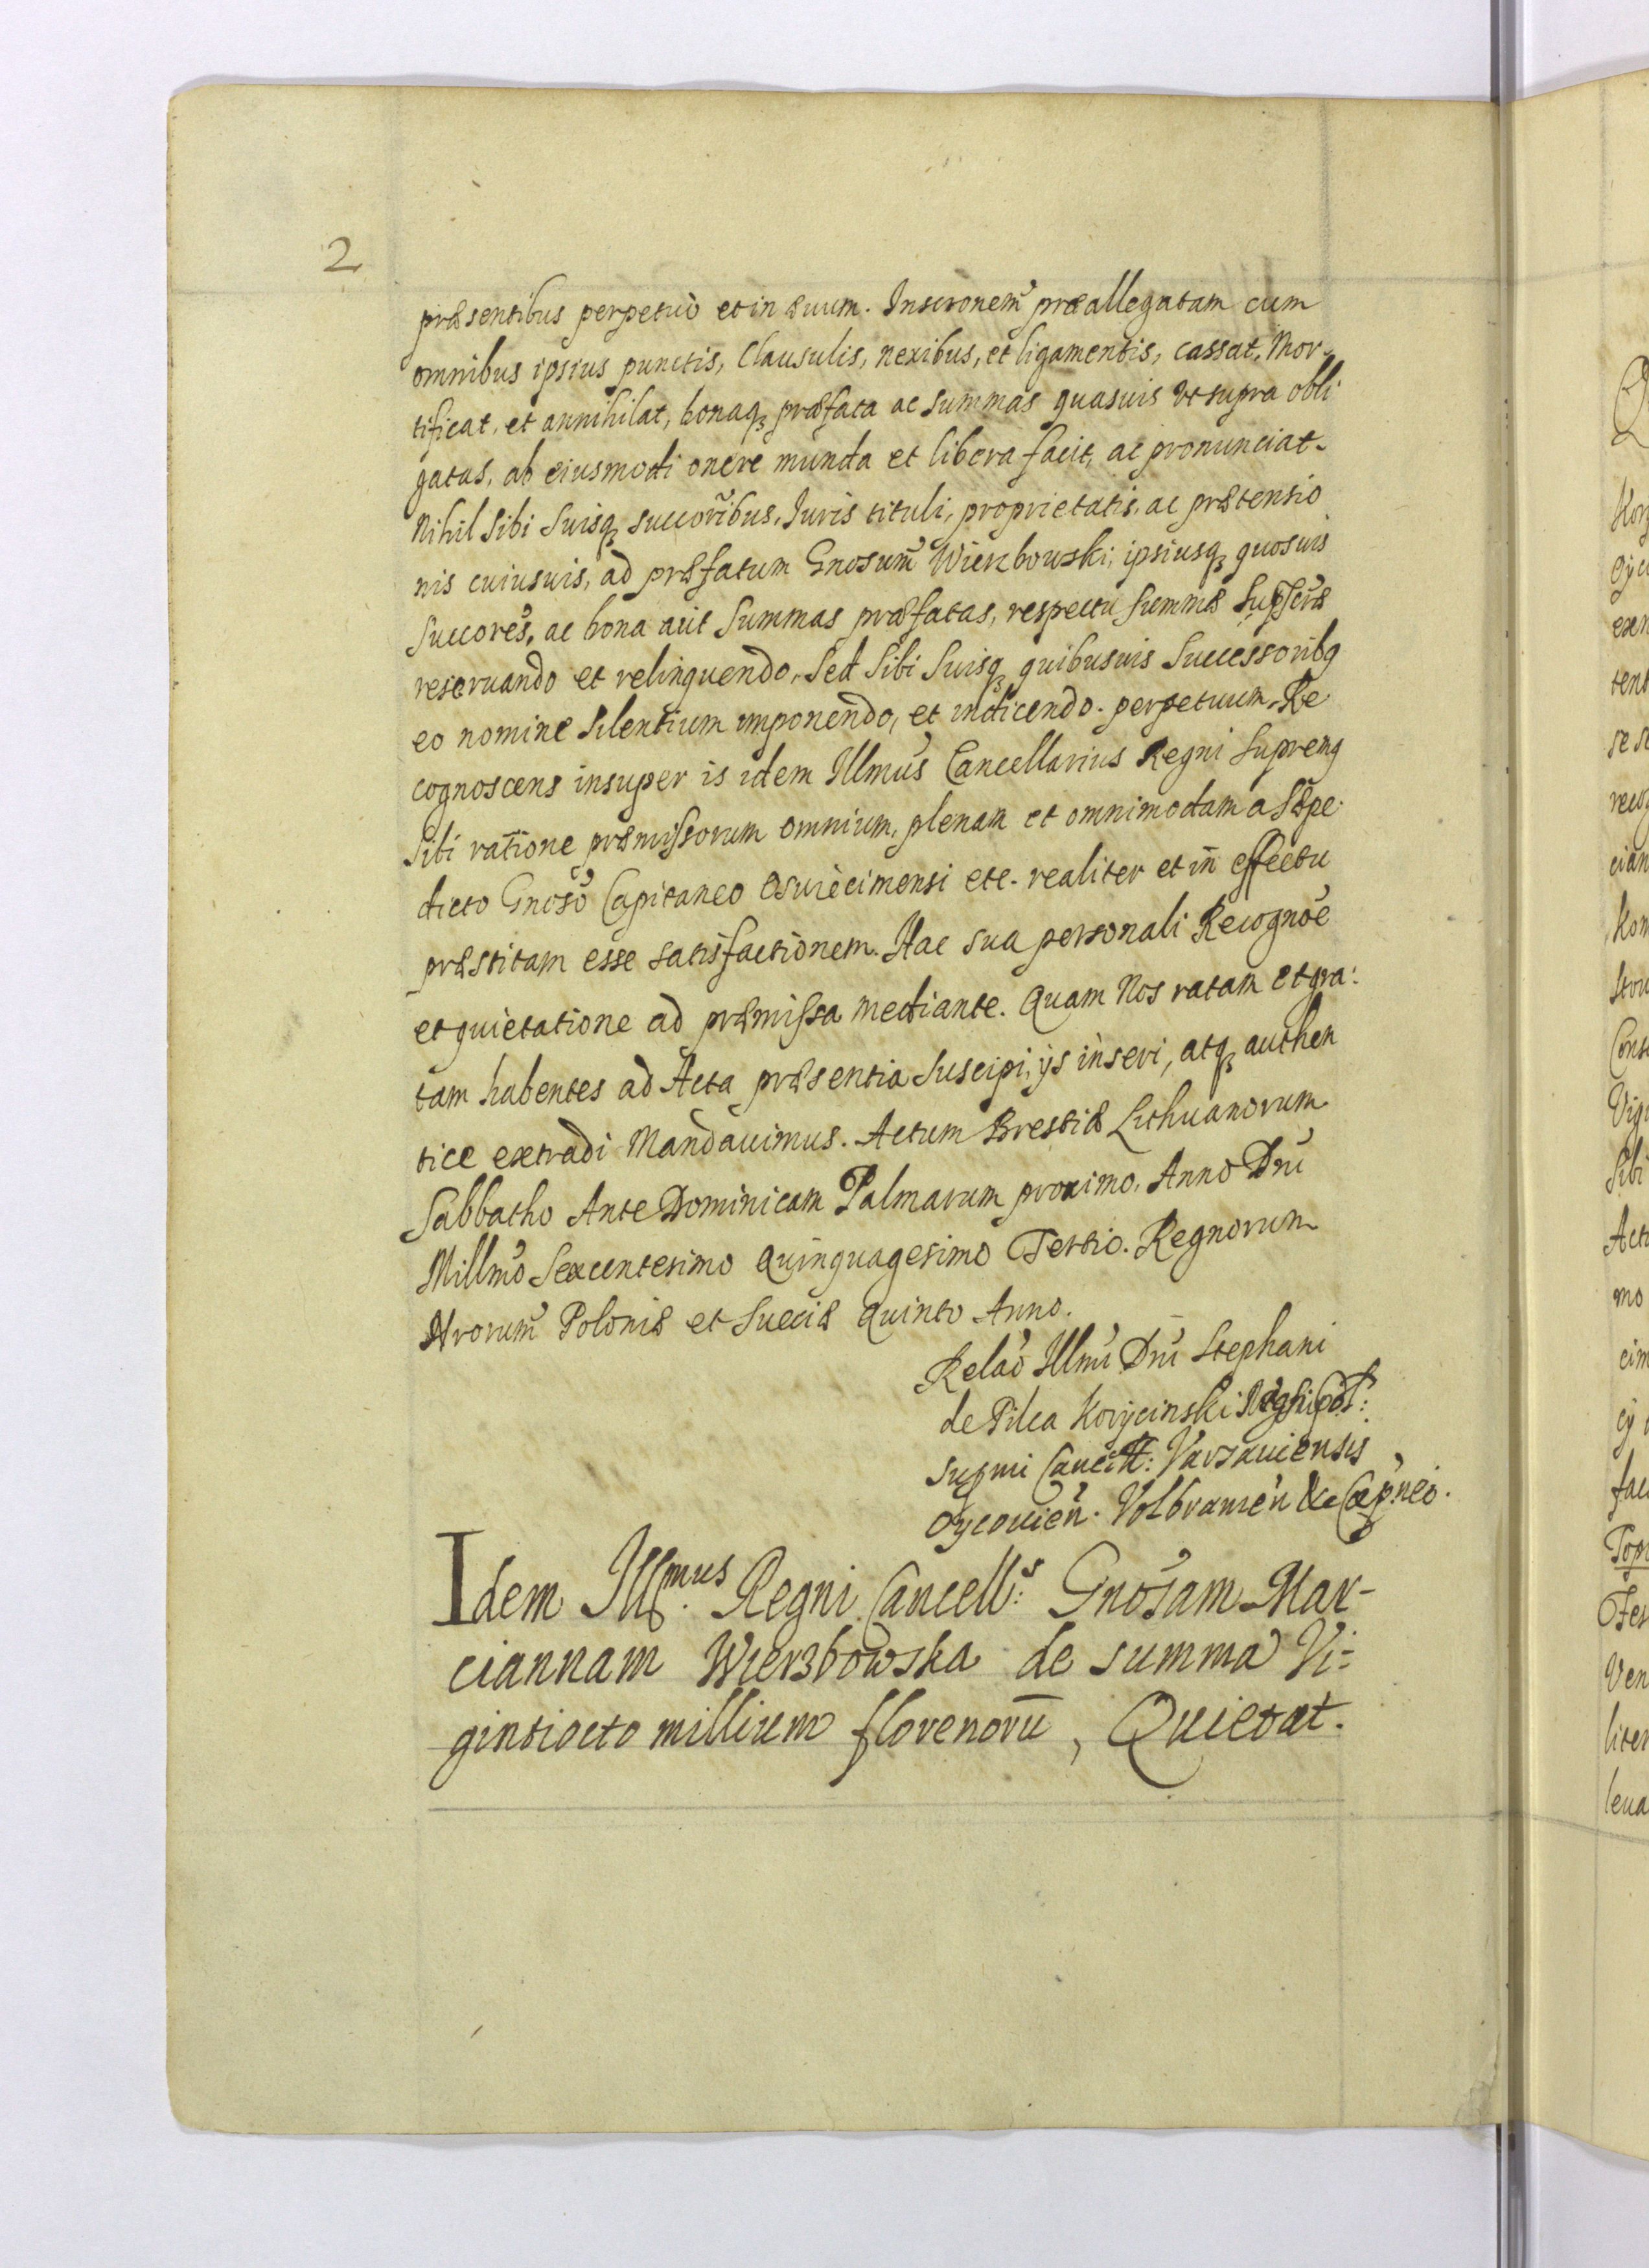 2
præsentibus perpetuò et in ævum. Inscronem̃ præallegatam cum
omnibus ipsius punctis, Clausulis, nexibus, et ligamentis, cassat, Mor-
tificat, et annihilat, bonaqꝫ præfata ac summas quasuis vt supra obli
gatas, ab eiusmodi onere munda et libera facit, ac pronunciat.
Nihil sibi suisqꝫ succorĩbus, Iuris tituli, proprietatis, ac prætensio
nis cuiusuis, ad præfatum Gnosum̃ Wierzbowski, ipsiusqꝫ quosuis
succores̃, ac bona aut summas præfatas, respectu summæ
reseruando et relinquendo, Sed sibi suisqꝫ quibusuis successoribꝯ
eo nomine silentium imponendo, et indicendo perpetuum. Re
cognoscens insuper is idem Illmus̃ Cancellarius Regni Supremꝯ
sibi ratione præmissorum omnium, plenam et omnimodam a sæpe
dicto Gnosõ Capitaneo Oswiecimensi etc. realiter et in effectu
præstitam esse satisfactionem. Hac sua personali Recognoẽ
et quietatione ad præmissa mediante. Quam Nos ratam et gra:
tam habentes ad Acta præsentia suscipi, ijs inseri, atqꝫ authen
tice extradi Mandauimus. Actum Brestiæ Lithuanorum
Sabbatho Ante Dominicam Palmarum proximo. Anno Dnĩ
Millmõ Sexcentesimo Quinquagesimo Tertio. Regnorum
Nrorum̃ Poloniæ et Sueciæ Quinto Anno.
Relaõ Illmĩ Dnĩ Stephani
de Pilca Korycinski Regni
supmi Cancell: Varsauiensis
Oycouien̄. Volbramen̄ &c Capnei.
Idem Illmus. Regni Cancells: Gnosam̃ Mar-
ciannam Wierzbowska de summa Vi-
gintiocto millium florenorū, Quietat.